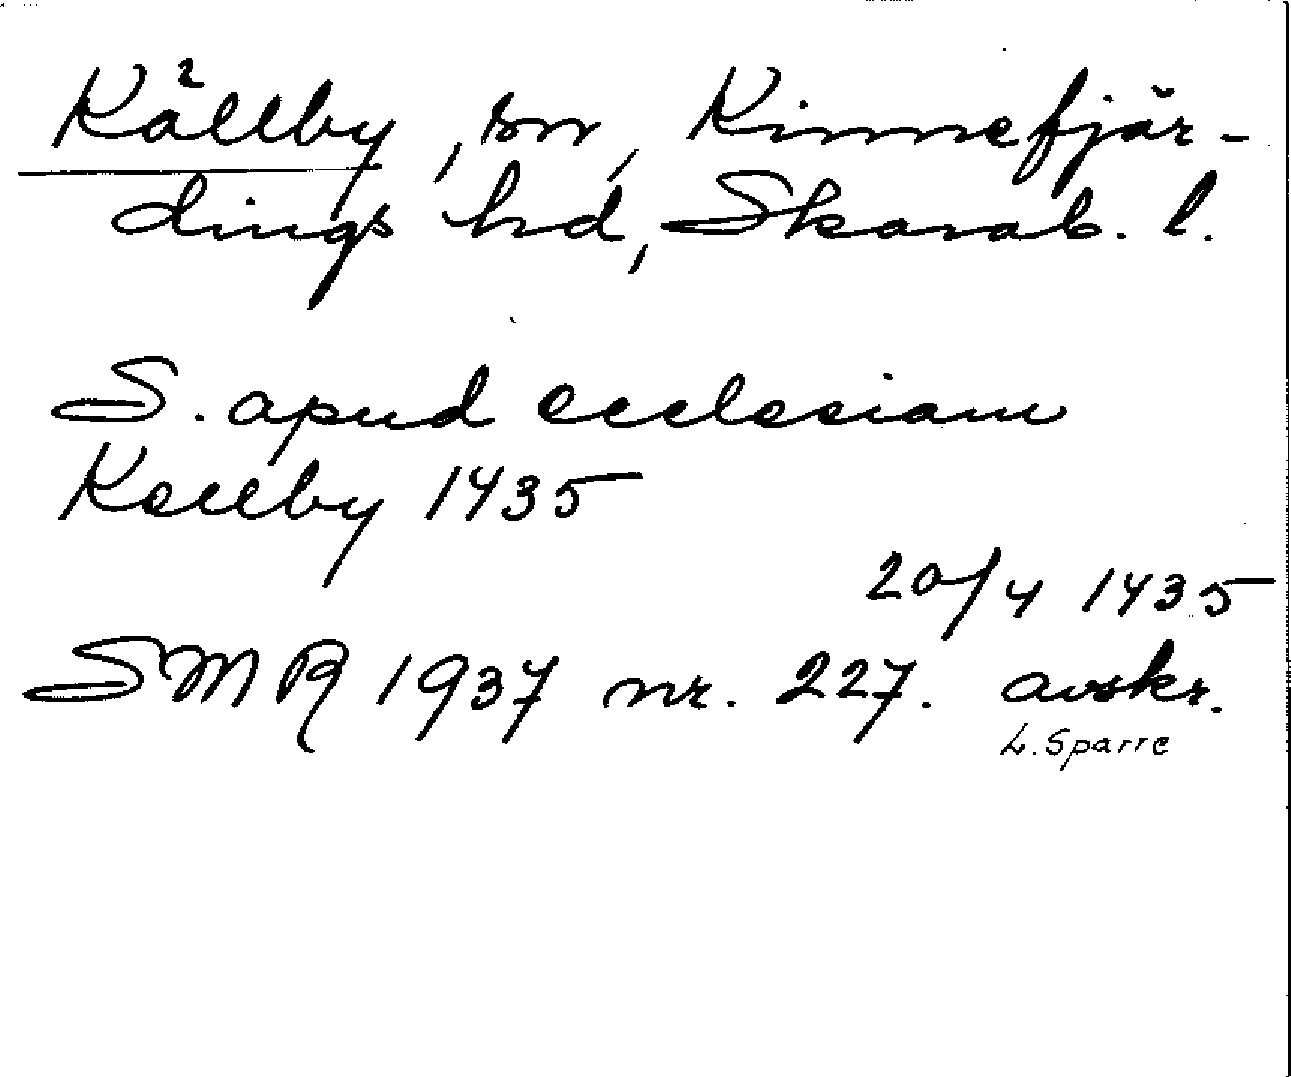 Källby, sn, Kinnefjär-
dings hd, Skarab. l.
S. apud ecclesiam
Kællby 1435
20/4 1435
SMR 1937 nr. 227. avskr.
L. Sparre